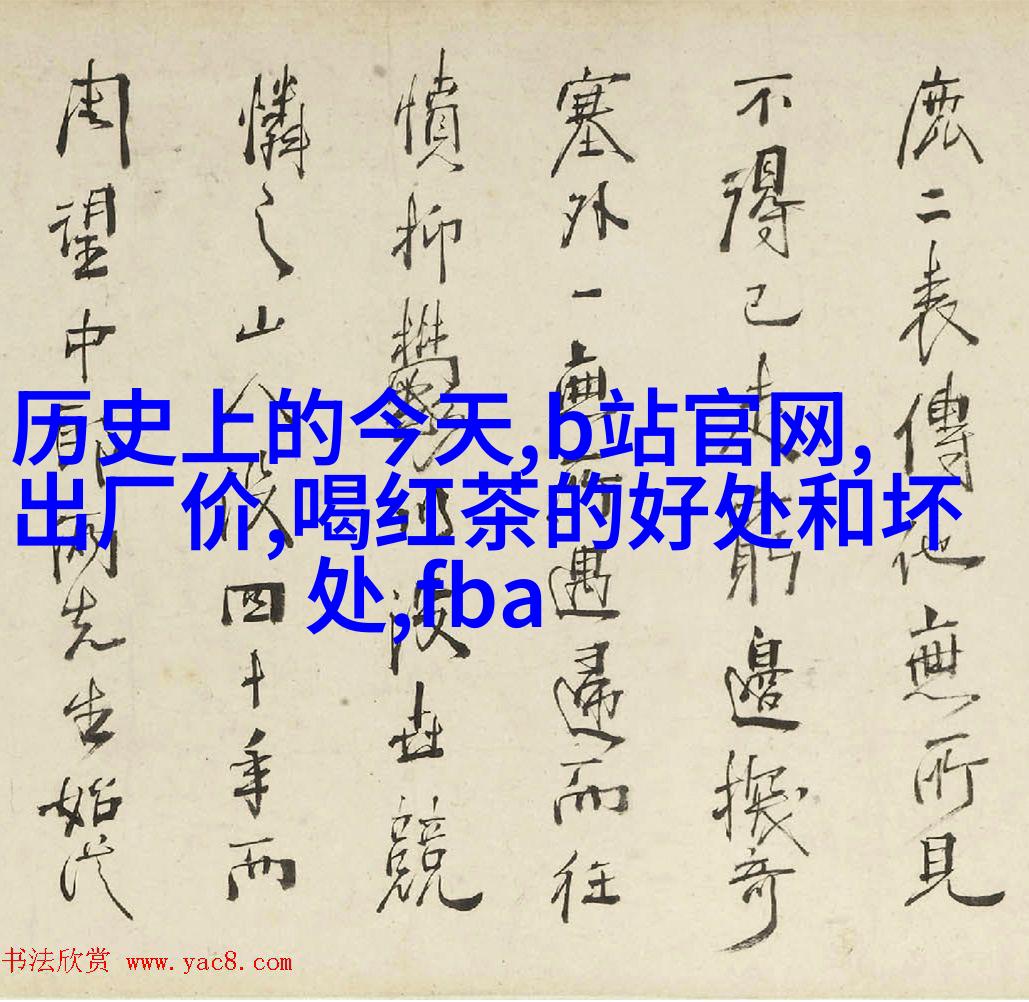 二表傳他無所見
不得已走窮邊
塞外一無所遇歸而往
憤抑鬱沒世競
憐之山人沒四十年而
周望中郎兩先生始
历史上的今天,b站官网,
出厂价,喝红茶的好处和坏
处,fba
书法欣赏 www.yac8.com